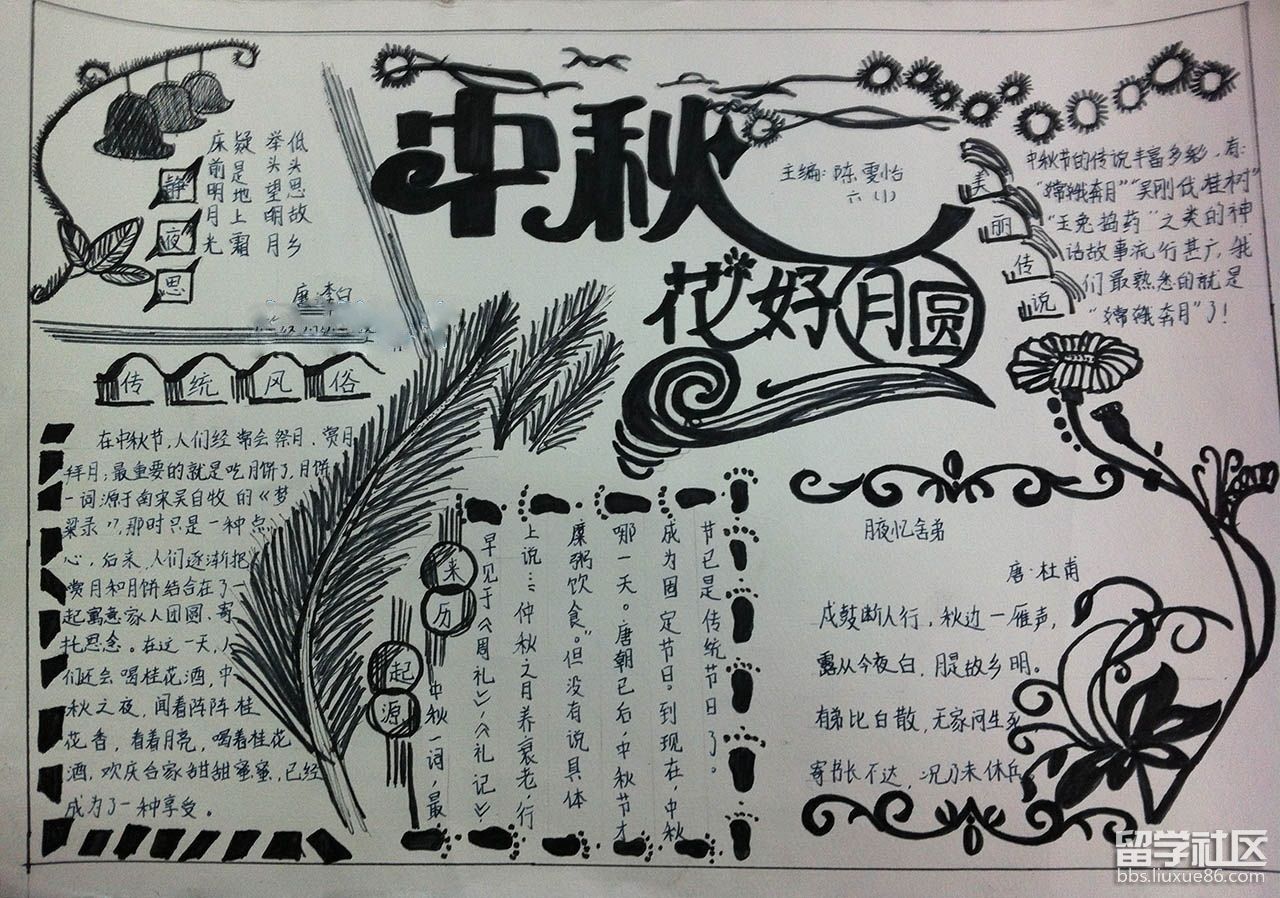 中秋
花好月圆
主编:陈雯怡
六(1)
静夜思
床前明月光
疑是地上霜
举头望明月
低头思故乡
唐·李白
美丽传说
中秋节的传说丰富多彩,有:
“嫦娥奔月”“吴刚伐桂树”
“玉兔捣药”之类的神
话故事流行甚广,我
们最熟悉的就是
“嫦娥奔月”了!
传统风俗
在中秋节,人们经常会祭月、赏月
拜月;最重要的就是吃月饼了,月饼
一词源于南宋吴自牧的《梦
梁录》,那时只是一种点
心,后来,人们逐渐把
赏月和月饼结合在了一
起寓意家人团圆、寄
托思念。在这一天,人
们还会喝桂花酒,中
秋之夜,闻着阵阵桂
花香,看着月亮,喝着桂花
酒,欢庆合家甜甜蜜蜜,已经
成为了一种享受。
来历
起源
中秋一词,最
早见于《周礼》,《礼记》
上说:“仲秋之月养衰老,行
糜粥饮食。”但没有说具体
哪一天。唐朝已后,中秋节才
成为固定节日。到现在,中秋
节已是传统节日了。
月夜忆舍弟
唐·杜甫
戍鼓断人行,秋边一雁声,
露从今夜白,月是故乡明。
有弟比白散,无家问生死
寄书长不达,况乃未休兵。
留学社区
bbs.liuxue86.com